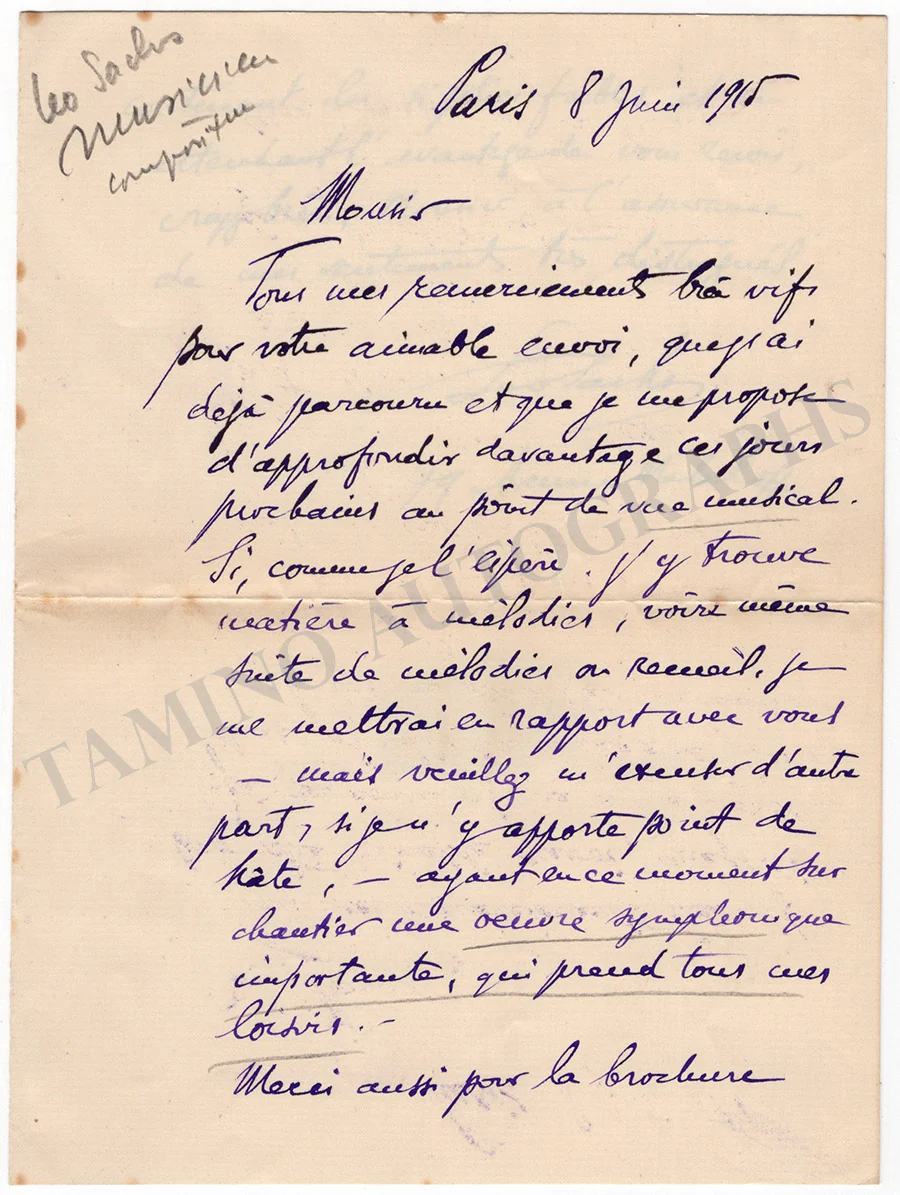 Leo Sachs
Musicien
compositeur
Paris 8 Juin 1915
Monsieur
Tous mes remerciements très vifs
pour votre aimable envoi, que j'ai
déjà parcouru et que je me propose
d'approfondir davantage ces jours
prochains au point de vue musical.
Si, comme je l'espère, j'y trouve
matière à mélodies, voire même
suite de mélodies ou recueil, je
me mettrai en rapport avec vous
— mais veuillez m'excuser d'autre
part, si je n'y apporte point de
hâte, — ayant en ce moment sur
chantier une oeuvre symphonique
importante, qui prend tous mes
loisirs. —
Merci aussi pour la brochure
TAMINO AUTOGRAPHS